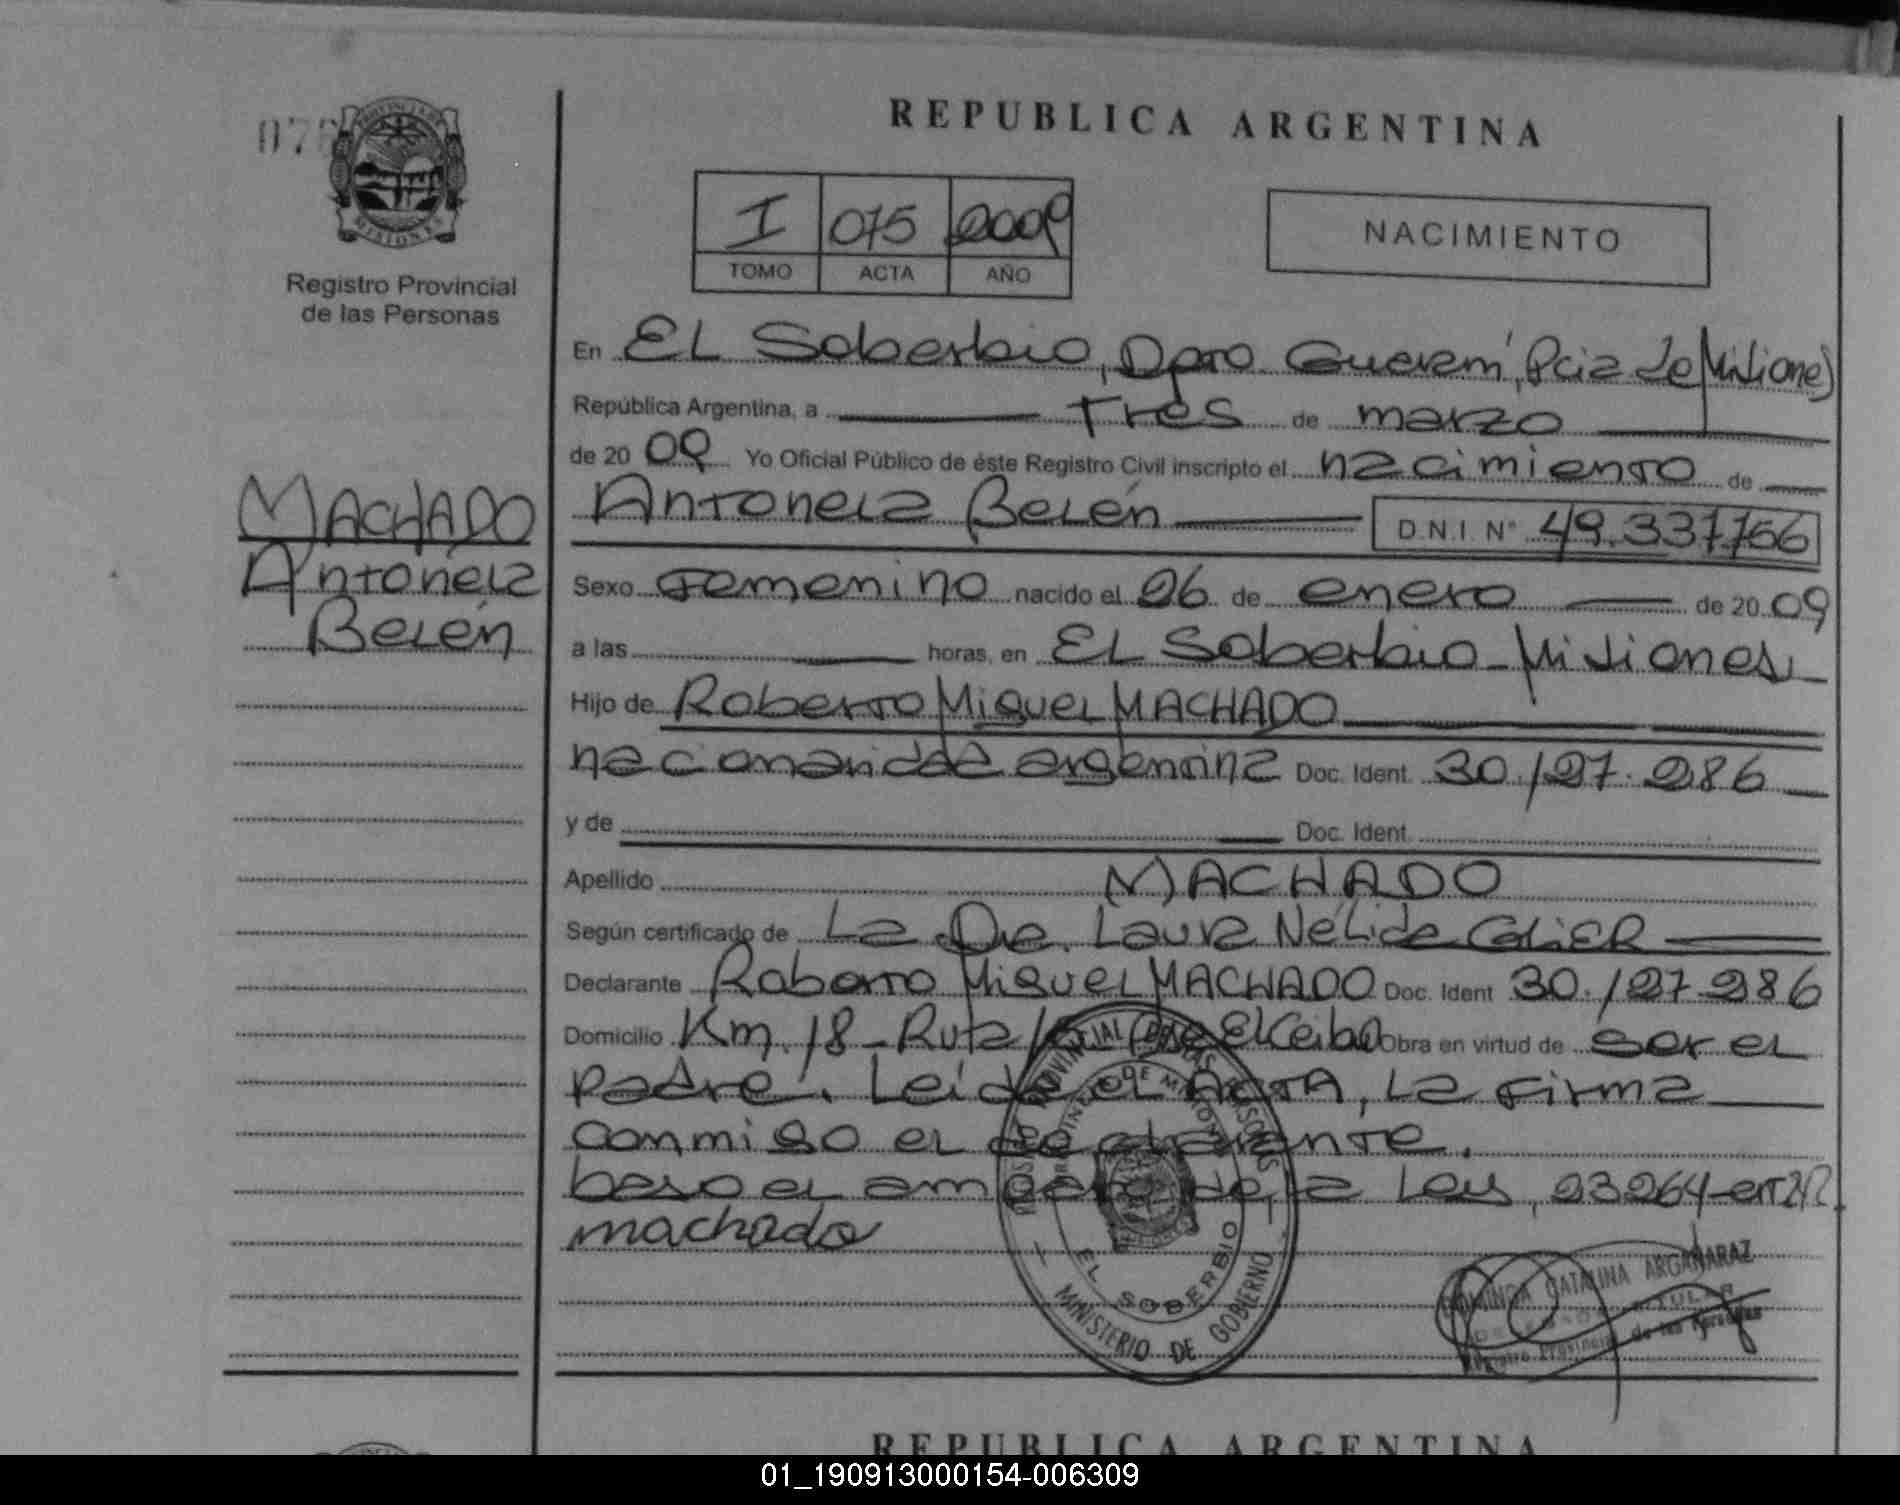 REPUBLICA ARGENTINA
PROVINCIA DE
MISIONES
Registro Provincial
de las Personas
I 075 2009
TOMO ACTA AÑO
NACIMIENTO
MACHADO
Antonela
Belén
En El Soberbio, Dpto. Guaraní, Pcia de Misiones
República Argentina, a Tres de marzo
de 20 09 Yo Oficial Público de éste Registro Civil inscripto el nacimiento de
Antonela Belén D.N.I. Nº 49.337.756
Sexo Femenino nacido el 06 de enero de 20 09
a las horas, en El Soberbio - Misiones
Hijo de Roberto Miguel MACHADO
nacionalidad argentina Doc. Ident. 30.127.286
y de Doc. Ident.
Apellido MACHADO
Según certificado de La Dra. Laura Nélida
Declarante Roberto Miguel MACHADO Doc. Ident 30.127.286
Domicilio Km. 18 - Ruta El Ceibo Obra en virtud de ser el
padre. Leída el ACTA, la firma
conmigo el declarante.
bajo el amparo de la Ley 23264-art
machado
REGISTRO PROVINCIAL DE LAS PERSONAS
PROVINCIA DE MISIONES
EL SOBERBIO
MINISTERIO DE GOBIERNO
CATALINA ARGAÑARAZ
TITULAR
Registro Provincial de las Personas
REPUBLICA ARGENTINA
01_190913000154-006309